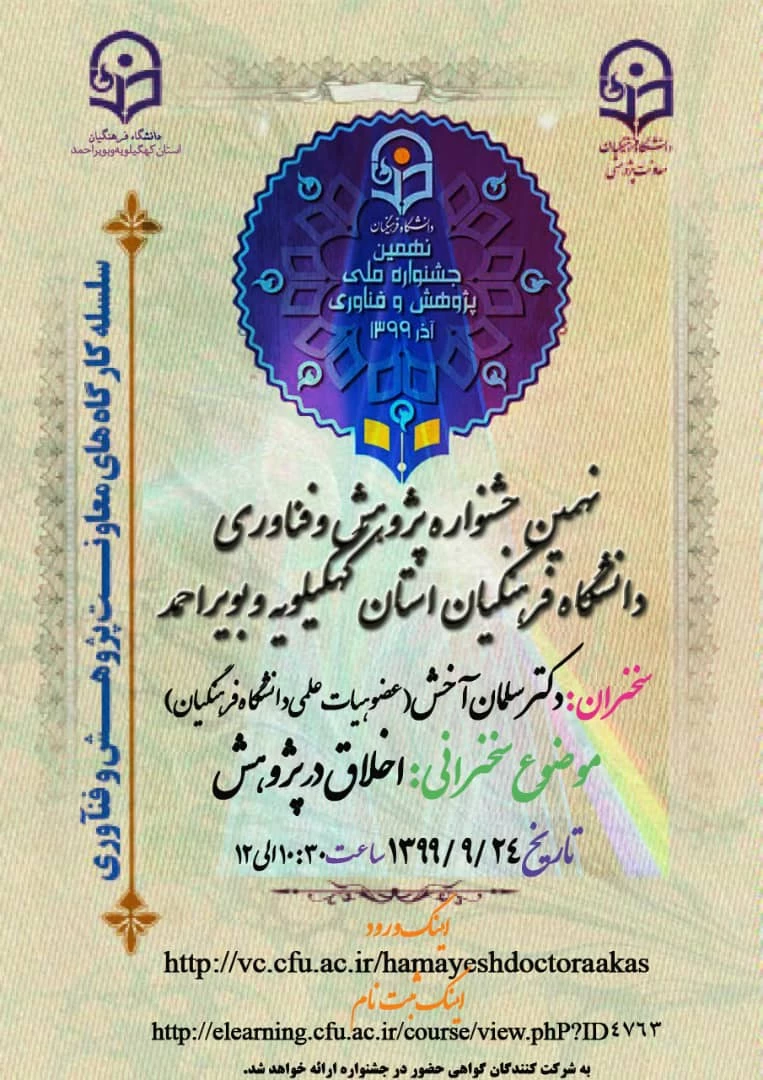 دانشگاه فرهنگیان
معاونت پژوهشی
دانشگاه فرهنگیان
استان کهگیلویه و بویراحمد
دانشگاه فرهنگیان
نهمین
جشنواره ملی
پژوهش و فناوری
آذر ۱۳۹۹
سلسله کارگاه های معاونت پژوهش و فنآوری
نهمین جشنواره پژوهش و فناوری
دانشگاه فرهنگیان استان کهگیلویه و بویراحمد
سخنران: دکتر سلمان آخش (عضو هیات علمی دانشگاه فرهنگیان)
موضوع سخنرانی: اخلاق در پژوهش
تاریخ ۱۳۹۹/۹/۲۴ ساعت ۱۰:۳۰ الی ۱۲
لینک ورود
http://vc.cfu.ac.ir/hamayeshdoctoraakas
لینک ثبت نام
http://elearning.cfu.ac.ir/course/view.phP?ID۴۷۶۳
به شرکت کنندگان گواهی حضور در جشنواره ارائه خواهد شد.